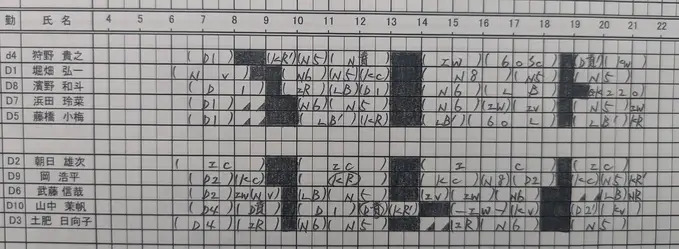 勤 氏名 4 5 6 7 8 9 10 11 12 13 14 15 16 17 18 19 20 21 22
d4 狩野 貴之 (D1) (KR')(N5)(N貴) (ZW)(60Sc) (D貴)(kv)
D1 堀畑 弘一 (N V) (N6)(N5)(Kc) (N8)(N5) (N5)
D8 濱野 和斗 (D1) (ZR)(LB)(D1) (N6)(LB)
D7 浜田 玲菜 (D1) (N6)(N5) (N6)(ZW)(ZV)(N5)ZW
D5 藤橋 小梅 (D1) (LB')(KR) (LB')(60L) (LB')KR
D2 朝日 雄次 (ZC) (ZC) (Z C) (ZC)
D9 岡 浩平 (D2)(KC) (KR) (KC)(N8)(D2) (KC)(N5)KR'
D6 武藤 信哉 (D2)ZW(NV) (LB)(N5) (ZV)(ZW)(N6) LB)NR
D10 山中 茉帆 (D4)(D貴) (D1)(D貴)(KR') (-ZW-)(KV) (D2')(KV)
D3 土肥 日向子 (D4)(ZR) (N6)(N5) (ZR)(N6) (N5)